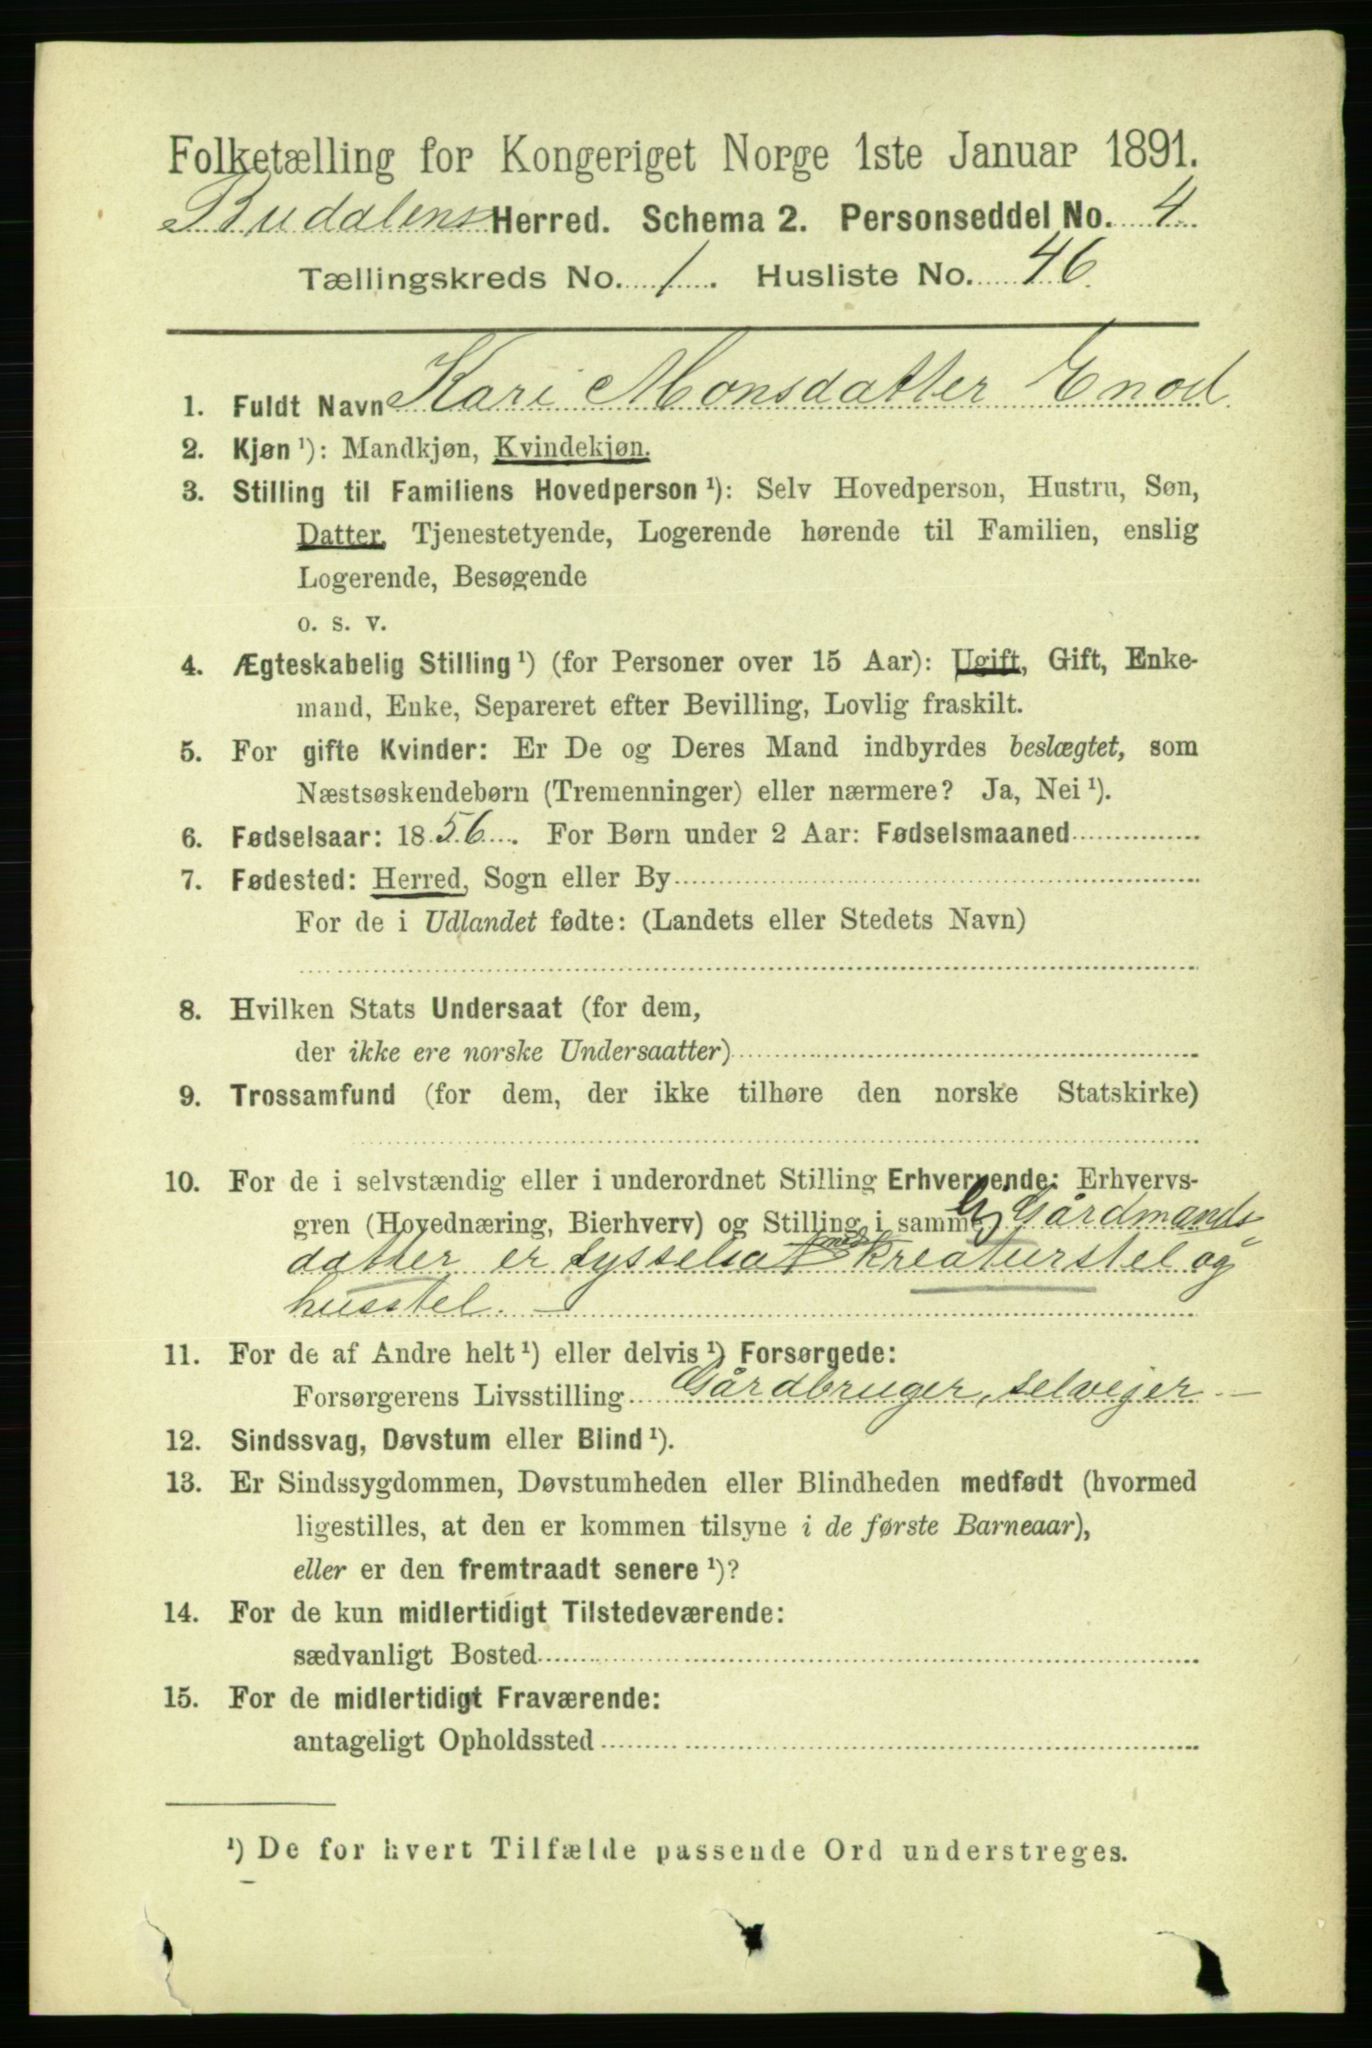 Folketælling for Kongeriget Norge 1ste Januar 1891.
Budalens Herred. Schema 2. Personseddel No. 4
Tællingskreds No. 1. Husliste No. 46
1. Fuldt Navn Kari Monsdatter Enod
2. Kjøn ¹): Mandkjøn, Kvindekjøn.
3. Stilling til Familiens Hovedperson ¹): Selv Hovedperson, Hustru, Søn,
Datter, Tjenestetyende, Logerende hørende til Familien, enslig
Logerende, Besøgende
o. s. v.
4. Ægteskabelig Stilling ¹) (for Personer over 15 Aar): Ugift, Gift, Enke-
mand, Enke, Separeret efter Bevilling, Lovlig fraskilt.
5. For gifte Kvinder: Er De og Deres Mand indbyrdes beslægtet, som
Næstsøskendebørn (Tremenninger) eller nærmere? Ja, Nei ¹).
6. Fødselsaar: 1856. For Børn under 2 Aar: Fødselsmaaned
7. Fødested: Herred, Sogn eller By
For de i Udlandet fødte: (Landets eller Stedets Navn)
8. Hvilken Stats Undersaat (for dem,
der ikke ere norske Undersaatter)
9. Trossamfund (for dem, der ikke tilhøre den norske Statskirke)
10. For de i selvstændig eller i underordnet Stilling Erhvervende: Erhvervs-
gren (Hovednæring, Bierhverv) og Stilling i samme Gårdmands
datter er sysselsat med kreaturstel og
husstel. —
11. For de af Andre helt ¹) eller delvis ¹) Forsørgede:
Forsørgerens Livsstilling Gårdbruger, selvejer —
12. Sindssvag, Døvstum eller Blind ¹).
13. Er Sindssygdommen, Døvstumheden eller Blindheden medfødt (hvormed
ligestilles, at den er kommen tilsyne i de første Barneaar),
eller er den fremtraadt senere ¹)?
14. For de kun midlertidigt Tilstedeværende:
sædvanligt Bosted
15. For de midlertidigt Fraværende:
antageligt Opholdssted
¹) De for hvert Tilfælde passende Ord understreges.